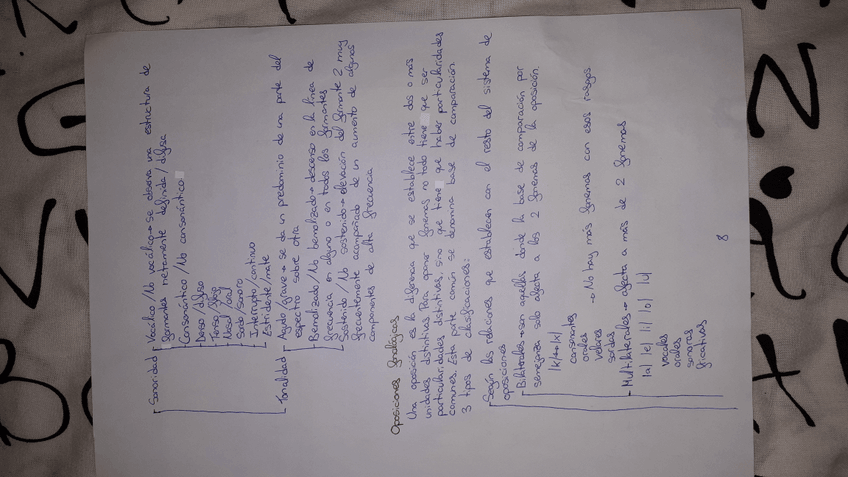 Sonoridad Vocálico/No vocálico → se observa una estructura de
formantes netamente definida/difusa
Consonántico/No consonántico
Denso/difuso
Tenso/flojo
Nasal/oral
Sordo/sonoro
Interrupto/continuo
Estridente/mate
Tonalidad Agudo/grave → se da un predominio de una parte del
espectro sobre otra
Bemolizado/No bemolizado → descenso en la línea de
frecuencia en alguno o en todos los formantes
Sostenido/No sostenido → elevación del formante 2 muy
frecuentemente acompañado de un aumento de algunos
componentes de alta frecuencia
Oposiciones fonológicas
Una oposición es la diferencia que se establece entre dos o más
unidades distintivas. Para oponer fonemas no todo tiene que ser
particularidades distintivas, sino que tiene que haber particularidades
comunes. Esta parte común se denomina base de comparación.
3 tipos de clasificaciones:
Según las relaciones que establecen con el resto del sistema de
oposiciones
Bilaterales → son aquellas donde la base de comparación por
semejanza solo afecta a los 2 fonemas de la oposición.
/k/ ↔ /x/
consonantes
orales
velares → No hay más fonemas con esos rasgos
sordas
Multilaterales → afecta a más de 2 fonemas
/a/ /e/ /i/ /o/ /u/
vocales
orales
sonoras
fricativas
8